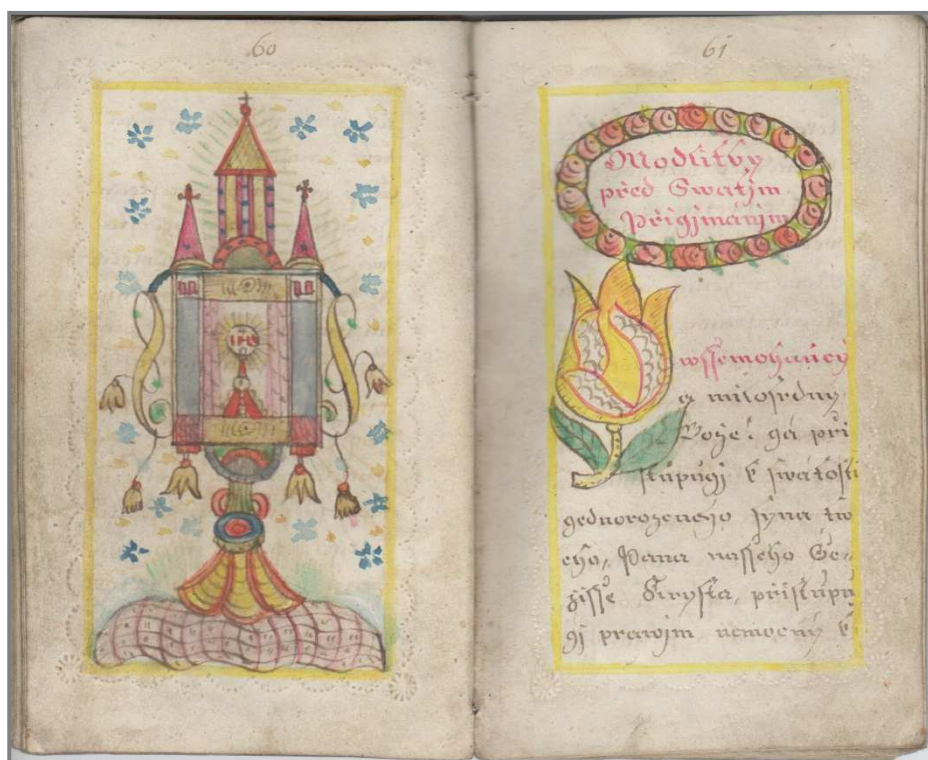 60
IHS
61
Modlitby
před Swatým
Přigjmánjm
wssemohaucý
a milosrdný
Bože! gá při
stupugi k swátosti
gednorozeného syna tw
ého, Pána nassého Ge-
žisse Krysta, přistupu
gi prawjm nemocný k